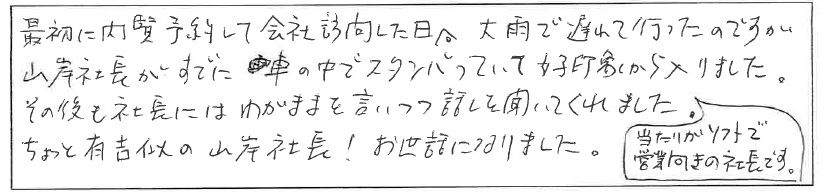 最初に内覧予約して会社訪問した日、大雨で遅れて行ったのですが
山岸社長がすでに車の中でスタンバっていて好印象から入りました。
その後も社長にはわがままを言いつつ話しを聞いてくれました。
ちょっと有吉似の山岸社長！お世話になりました。
当たりがソフトで
営業向きの社長です。